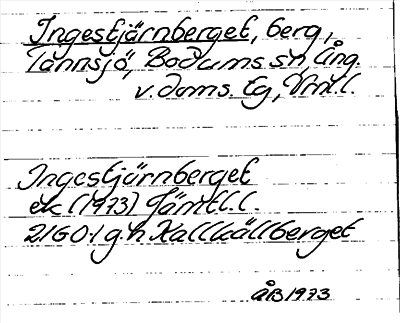 Ingestjärnberget, berg,
Tännsjö, Bodums sn, Ång.
v. doms. tg, Vrnl.l.
Ingestjärnberget
ek (1973) Jämtl.l.
21G0i g.h. Kallkällberget
ÅB 1973